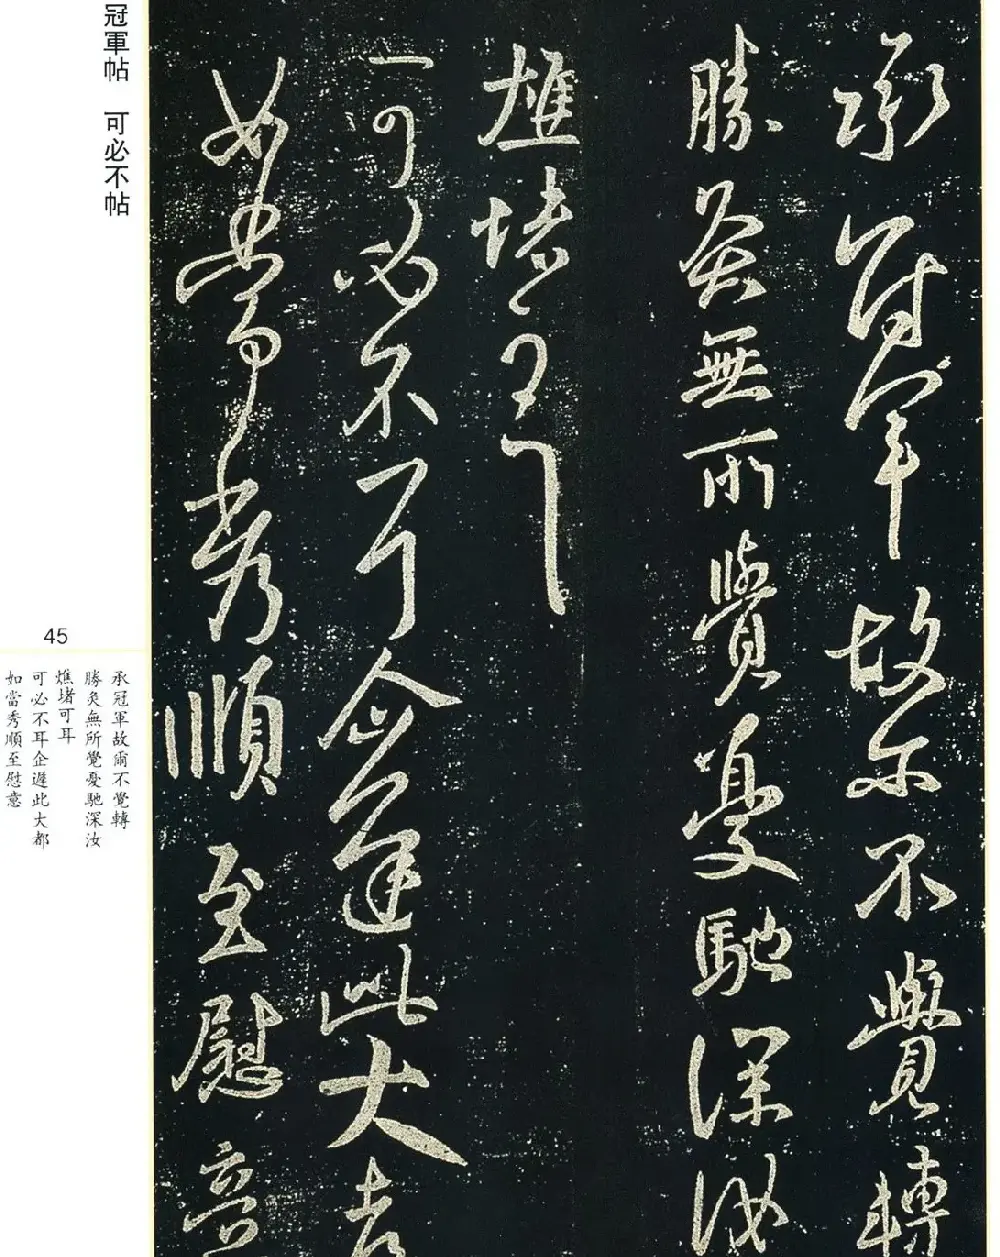 承冠軍故爾不覺轉
勝灸無所覺憂馳深汝
燋堵可耳
可必不耳企遲此大都
如當秀順至慰意
冠軍帖 可必不帖
45
承冠軍故爾不覺轉
勝灸無所覺憂馳深汝
燋堵可耳
可必不耳企遲此大都
如當秀順至慰意